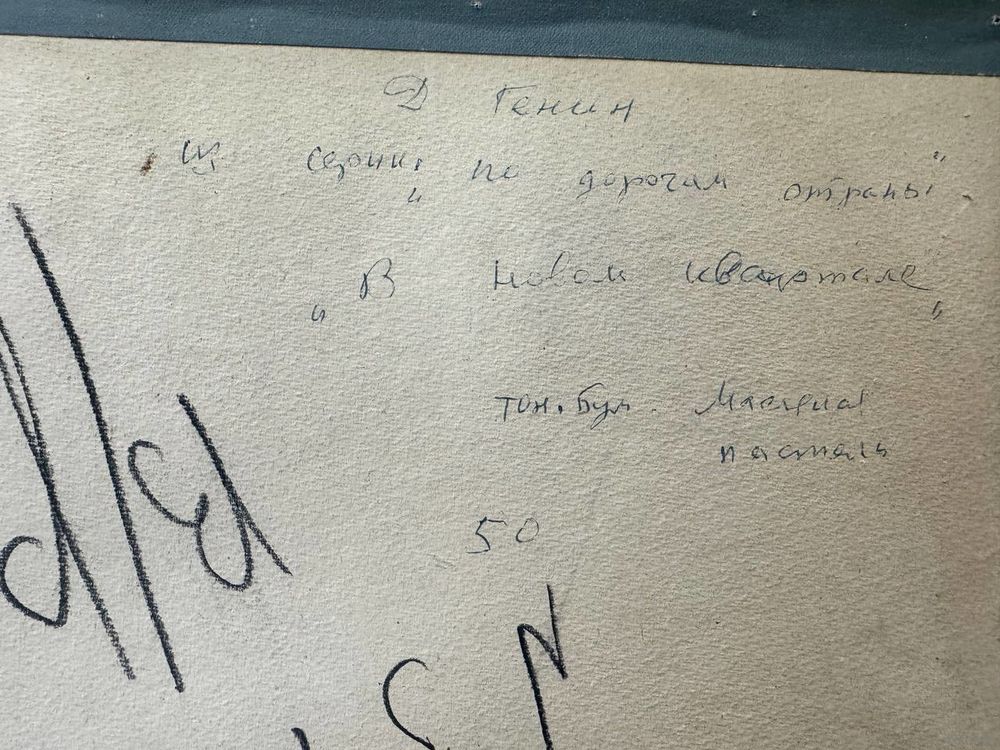 Д Генин
Из серии: "по дорогам страны"
"В новом квартале"
тон. бум. Масляная
пастель
50